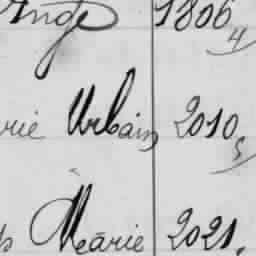 Ange 1806 4
rie Urbain 2010 5
Marie 2021.